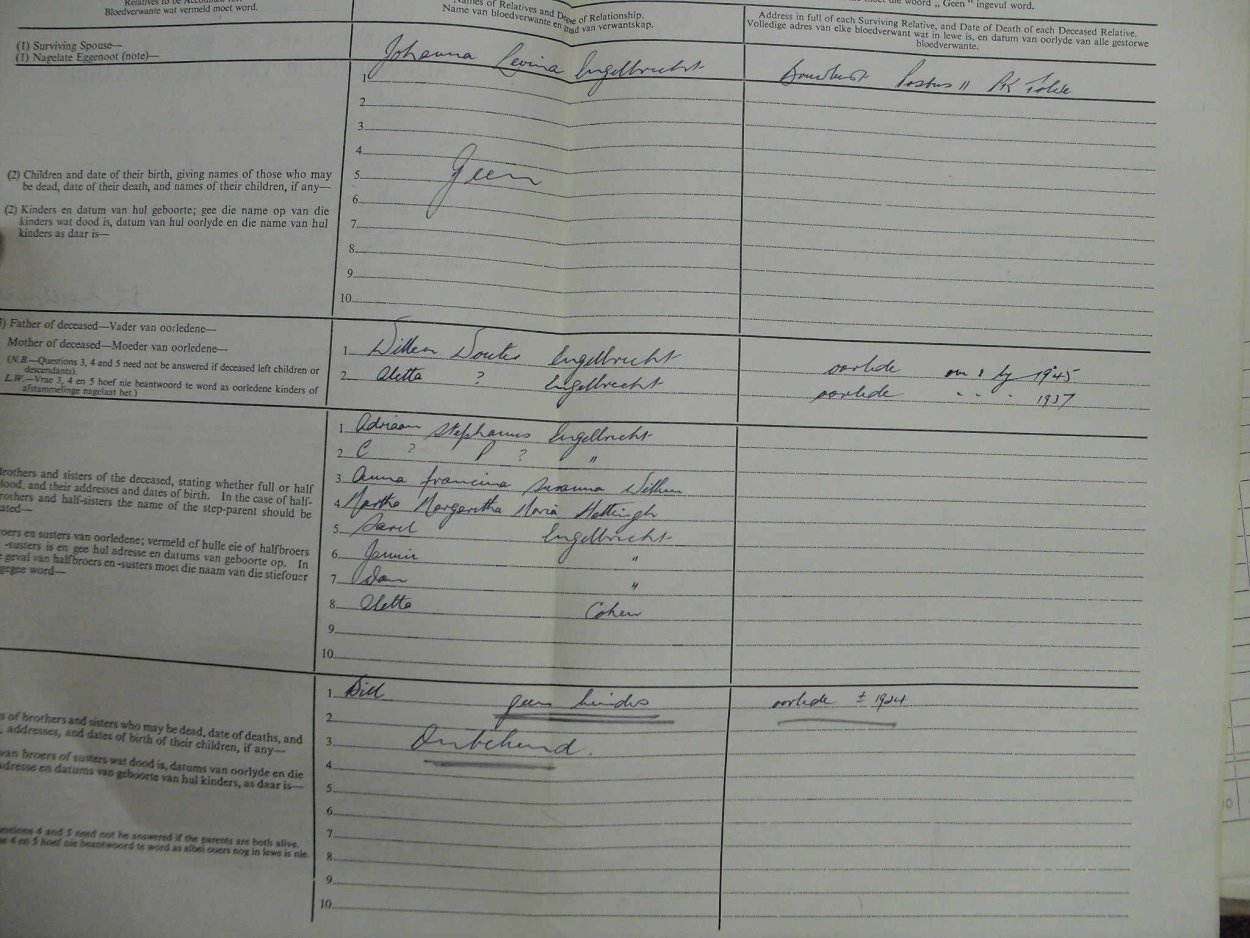 Bloedverwante wat vermeld moet word.
Names of Relatives and Degree of Relationship.
Name van bloedverwante en graad van verwantskap.
moet die woord „ Geen " ingevul word.
Address in full of each Surviving Relative, and Date of Death of each Deceased Relative.
Volledige adres van elke bloedverwant wat in lewe is, en datum van oorlyde van alle gestorwe
bloedverwante.
(1) Surviving Spouse—
(1) Nagelate Eggenoot (note)—
1. Johanna Levina Engelbrecht Posbus 11 PK
2.
3.
4.
5. Geen
6.
7.
8.
9.
10.
(2) Children and date of their birth, giving names of those who may
be dead, date of their death, and names of their children, if any—
(2) Kinders en datum van hul geboorte; gee die name op van die
kinders wat dood is, datum van hul oorlyde en die name van hul
kinders as daar is—
3) Father of deceased—Vader van oorledene—
Mother of deceased—Moeder van oorledene—
(N.B.—Questions 3, 4 and 5 need not be answered if deceased left children or
descendants).
L.W.—Vrae 3, 4 en 5 hoef nie beantwoord te word as oorledene kinders of
afstammelinge nagelaat het.)
1. Willem Wouter Engelbrecht oorlede 1945
2. Aletta ? Engelbrecht oorlede " " " 1937
Brothers and sisters of the deceased, stating whether full or half
blood, and their addresses and dates of birth. In the case of half-
brothers and half-sisters the name of the step-parent should be
stated—
Broers en susters van oorledene; vermeld of hulle eie of halfbroers
-susters is en gee hul adresse en datums van geboorte op. In
geval van halfbroers en -susters moet die naam van die stiefouer
gegee word—
1. Adriaan Stephanus Engelbrecht
2. C ? P ? "
3. Anna Francina Susanna Willem
4. Martha Margaretha Maria Hattingh
5. Sarel Engelbrecht
6. Jannie "
7. Dan "
8. Aletta Cohen
9.
10.
s of brothers and sisters who may be dead, date of deaths, and
addresses, and dates of birth of their children, if any—
van broers of susters wat dood is, datums van oorlyde en die
adresse en datums van geboorte van hul kinders, as daar is—
Questions 4 and 5 need not be answered if the parents are both alive.
4 en 5 hoef nie beantwoord te word as albei ouers nog in lewe is nie.
1. Bill geen kinders oorlede ± 1924
2.
3. Onbekend.
4.
5.
6.
7.
8.
9.
10.